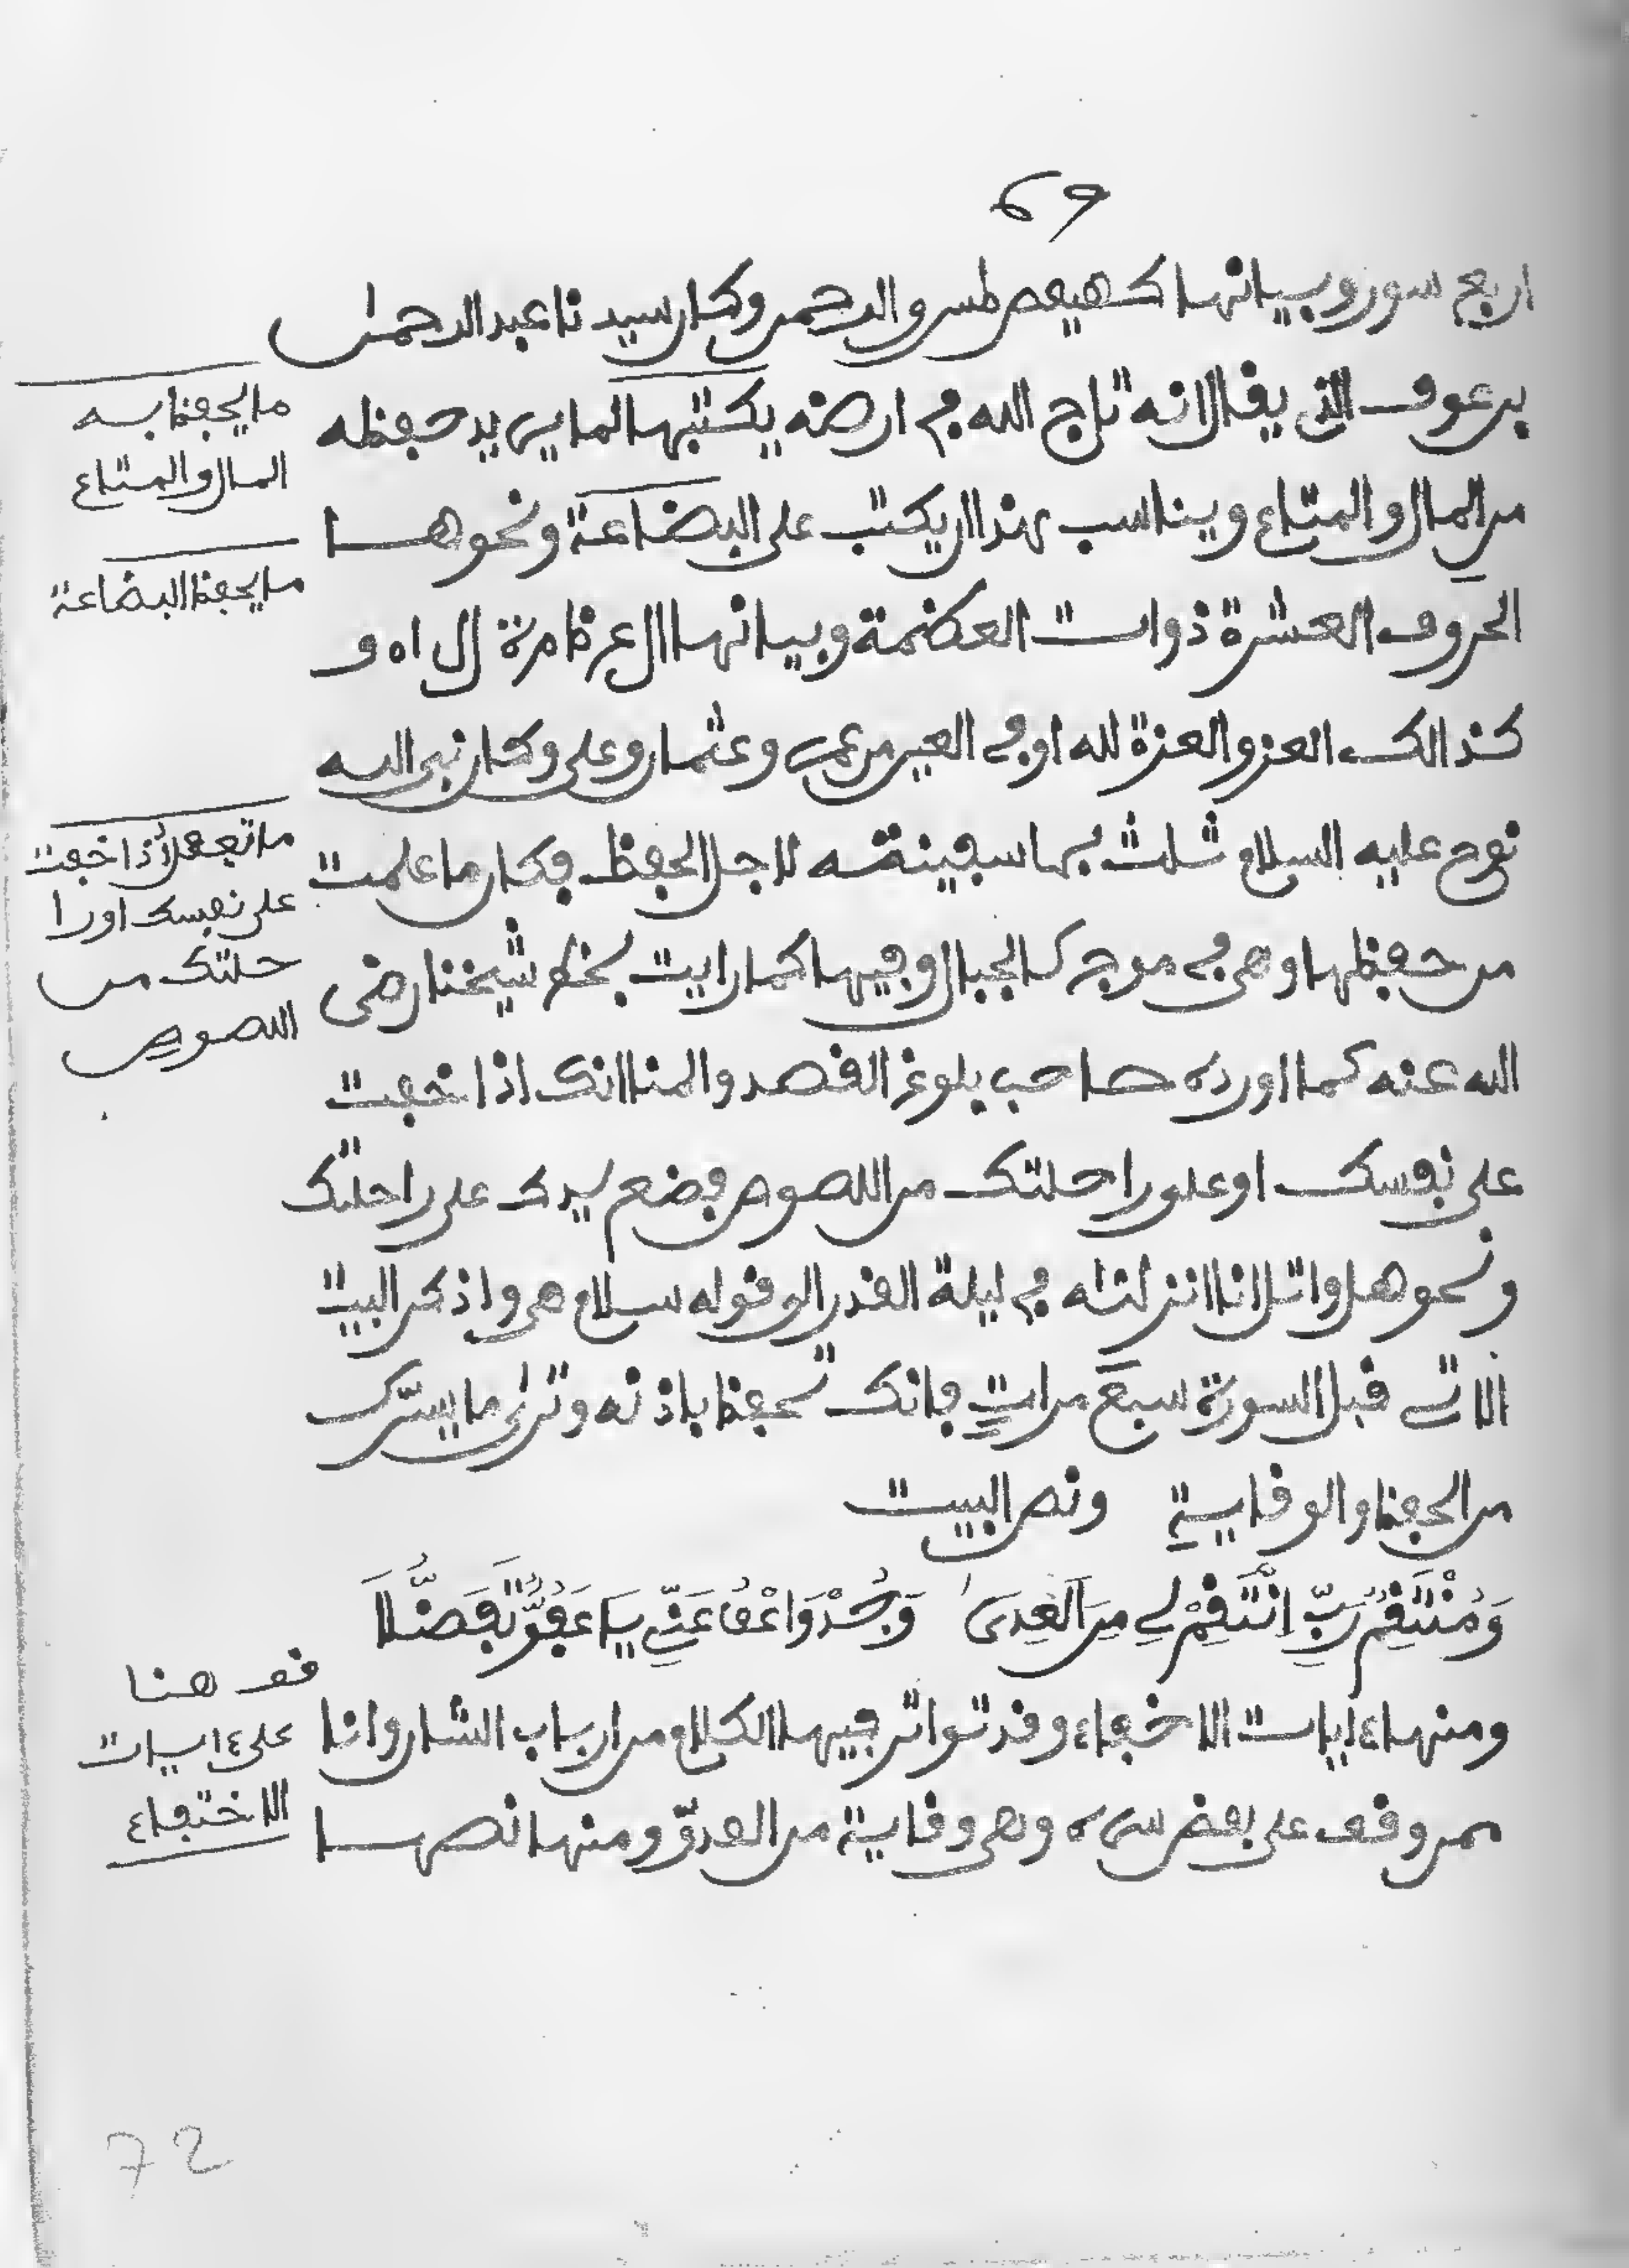 69
اربع سور وبيانها كهيعص طس والرحمن وكان سيدنا عبد الرحمٰن
بن عوف الذي يقال انه تاج الله في ارضه يكتبها لما يريد حفظه
من المال والمتاع ويناسب هذا ان يكتب على البضاعة ونحوها
الحروف العشرة ذوات العظمة وبيانها ال ع ز ظ ا م ة ال ا ه و
كذالك العز والعزة لله او في العين من عمر وعثمان وعلي وكان نبي الله
نوح عليه السلام شلث بها سفينته لاجل الحفظ فكان ما علمت
من حفظها وهي في موج كالجبال وفيها كما رايت بخط شيخنا رضي
الله عنه كما اورده صاحب بلوغ القصد والمنا انك اذا خفت
على نفسك او على راحلتك من اللصوص فضع يدك على راحلتك
ونحوها واتل انا انزلناه في ليلة القدر الى قوله سلام هي واذكر البيت
الاتي قبل السورة سبع مرات فانك تحفظ باذنه وترى ما يسرّك
من الحفظ والوقاية ونص البيت
وَمُنْتَقِمٌ رَبِّ انْتَقِمْ لِي مِنَ الْعِدَىٰ وَجُدْ وَاعْفُ عَنِّي يَا عَفُوُّ تَفَضُّلَا
ومنها ءايات الاخفاء وقد تواتر فيها الكلام من ارباب الشان وانا
ممن وقف على بعض سره وهي وقاية من العدوّ ومنها نصها
ما يحفظ به
المال والمتاع
ما يحفظ البضاعة
ما تفعل اذا خفت
على نفسك او را
حلتك من
اللصوص
قف هنا
على ءايات
الاختفاء
72